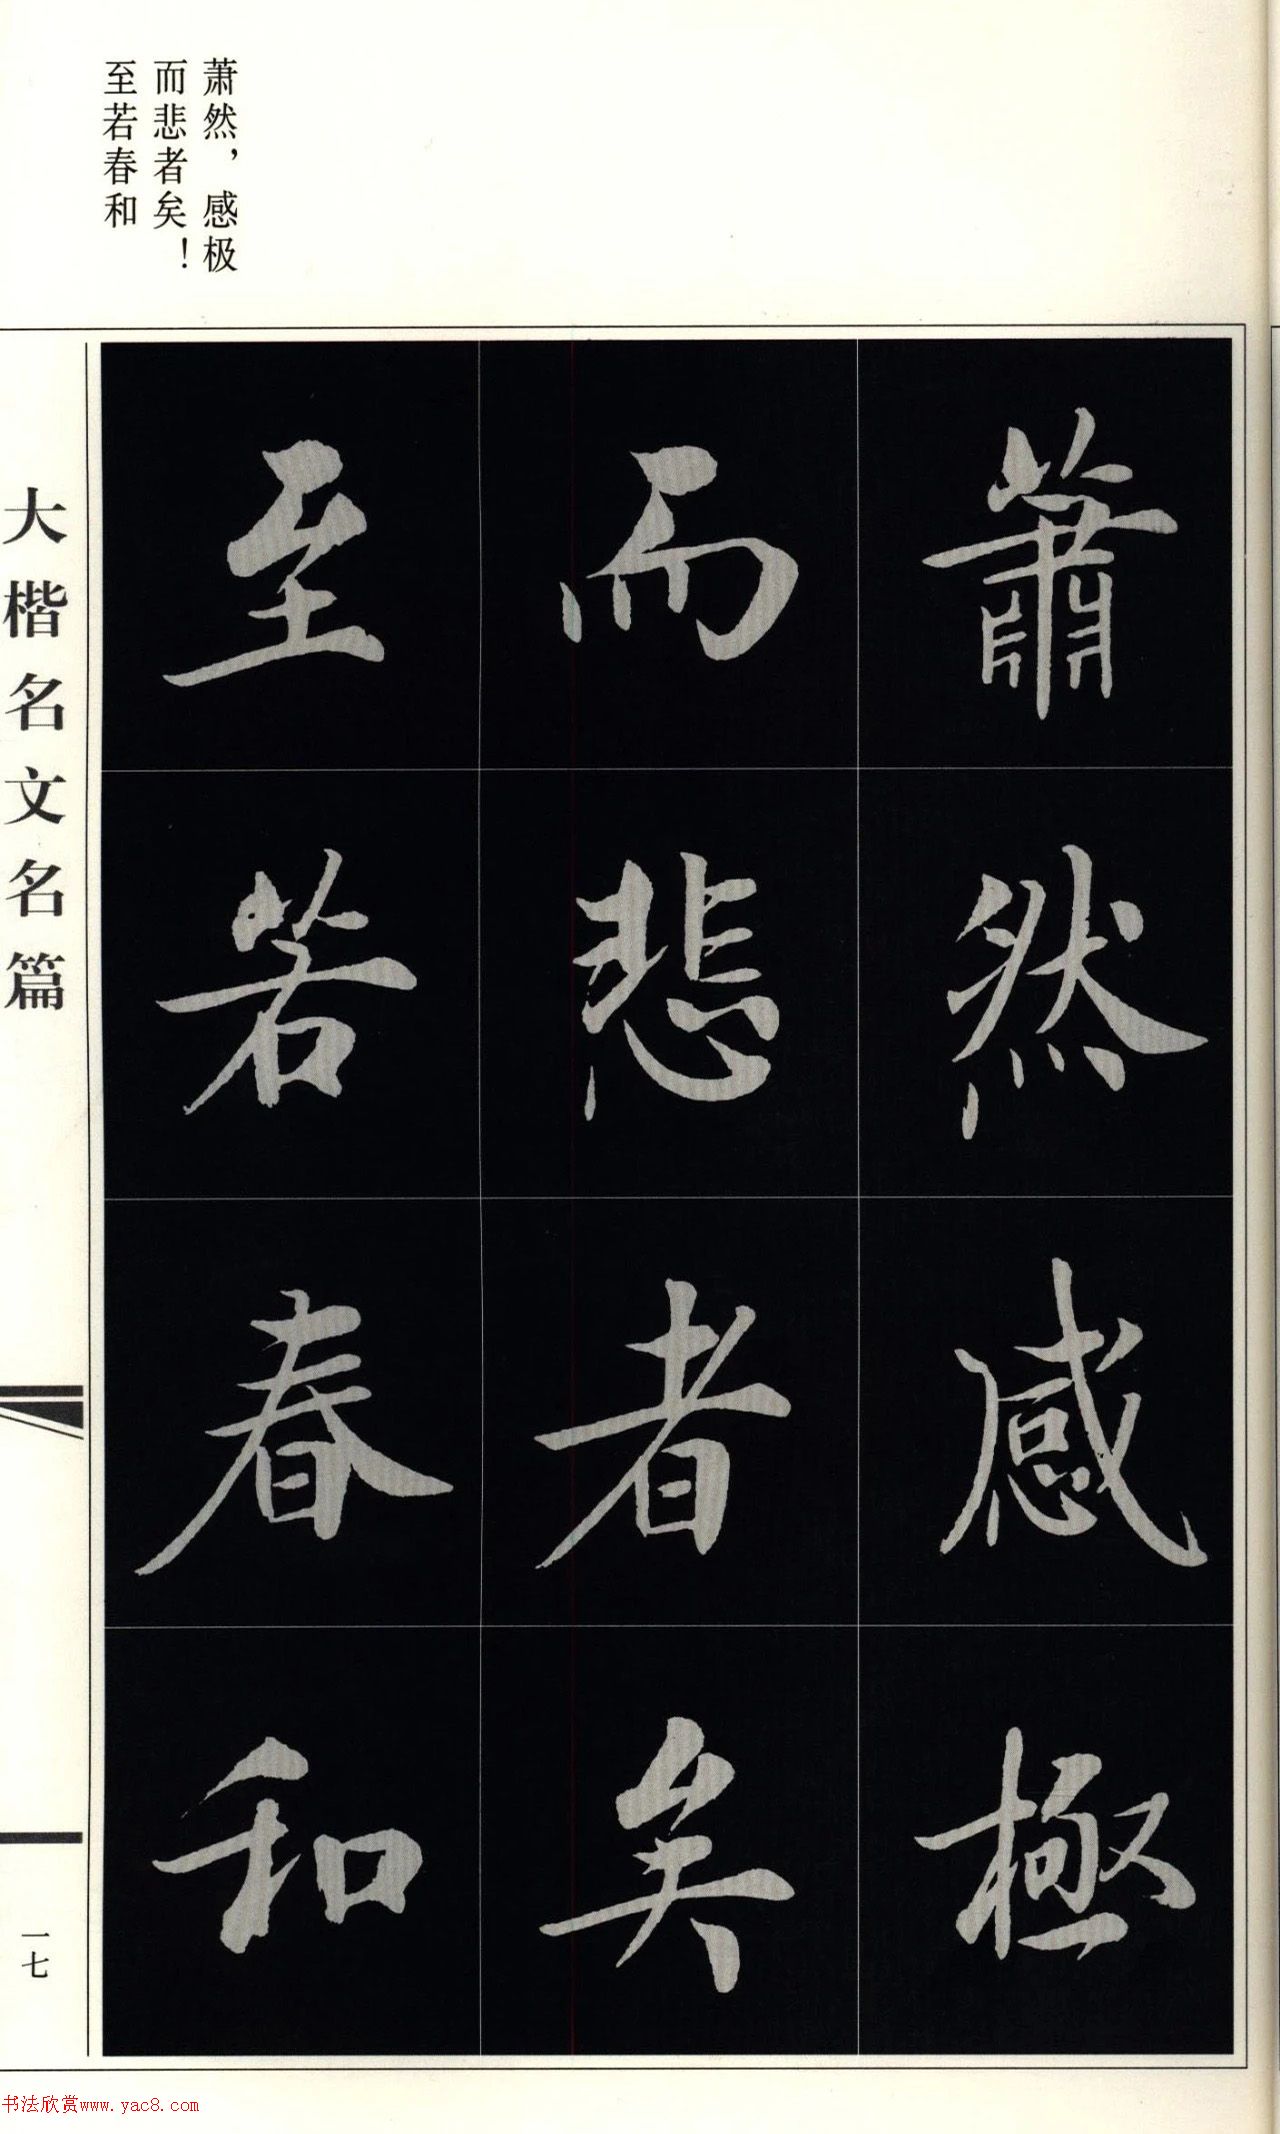 萧然，感极
而悲者矣！
至若春和
蕭然感極
而悲者矣
至若春和
大楷名文名篇
一七
书法欣赏www.yac8.com